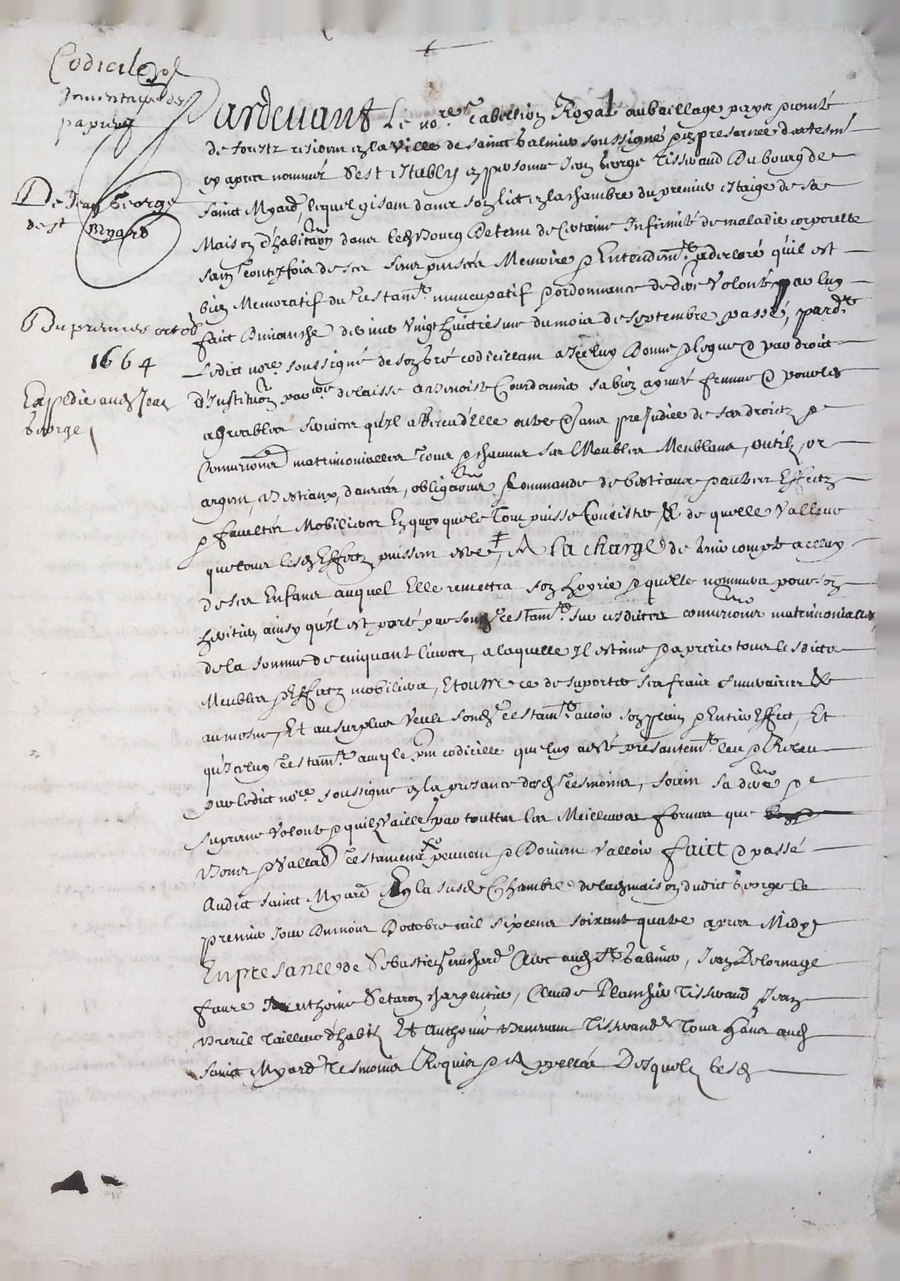 Codicile
Inventaire des
papiers
De Jean George
de St
Myard
Du premier octob
1664
Expedié aud Jean
George
Pardevant Le no.re tabellion Royal au bailliage pays
de forestz resident en la Ville de sainct Galmier soussigné et presence des tesm
cy apres nommés s'est estably en personne Jean George Tisserand du bourg de
Sainct Myard, lequel gisant dans son lict en la chambre du premier estaige de sa
Maison d'habitaon dans led bourg detenu de certaine Infirmité de maladie corporelle
sain toutesfois de ses sens pensée Memoire et Entendem.t a declaré qu'il est
bien Memoratif du testam.t nuncupatif et ordonnance de der Volonté par luy
fait dimanche dernier Vingt huictiesme du mois de Septembre passé, pard.t
Ledict no.re soussigné de son gré codicillant a Icelluy donne et legue et par droit
d'Institution delaisse a Benoiste sa bien aymée femme et pour les
agreables services qu'il a Receu d'Elle outre et sans prejudice de ses droictz et
Convenons matrimonialles tous et chacuns ses Meubles Meublans, outilz, or
argent, bestiaux, danrées, obligaons Commande de bestiaux et autres Effectz
et facultés Mobiliaires En quoy que le Tout puisse Consister & de quelle Valleur
que tous lesd Effectz puissent estre, A la charge de rendre compte a celluy
de ses Enfans auquel Elle remettra son hoyrie et qu'elle nommera pour son
heritier ainsy qu'il est porté par sond testam.t sur cesdites convenons matrimonialles
de la somme de cinquante livres, a laquelle Il estime et apretie tous lesdicts
Meubles et Effectz mobiliaires, Et outre ce de suporter ses frais funeraires &
aumosnes, Et au surplus Veult sond testam.t avoir son plain et Entier Effect, Et
qu'Icelluy testam.t avec le pnt codicille que luy a esté presantem.t leu et Releu
par ledict no.re soussigne en la presance desd tesmoins, soient sa der.e et
supreme Volonté et qu'ilz Vaillent par touttes les Meilleures formes que
bons et Vallad testamens peuvent et doivent Valloir faict et passé
Audict sainct Myard En la susd Chambre de lad maison dudict George le
premier Jour du mois d'octobre mil six cens soixante quatre apres Midy
En presance de Sebastien aud St Galmier, Jean Delornage
faure Anthoine charpentier, Claude Planchier Tisserand Jean
tailleur d'habitz Et Anthoine Tisserand Tous aud
Sainct Myard tesmoins Requis et Appellés Desquelz lesd